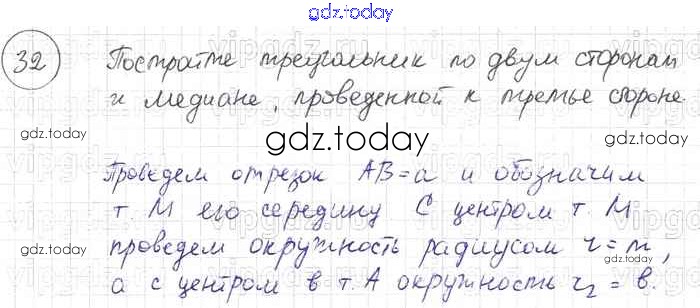 gdz.today
32
Постройте треугольник по двум сторонам
и медиане, проведенной к третье стороне.
gdz.today
gdz.today
gdz.today
Проведем отрезок AB = a и обозначим
т. M его середину С центром т. M
gdz.today
проведем окружность радиусом r = m,
gdz.today
а с центром в т. A окружность r₂ = b.